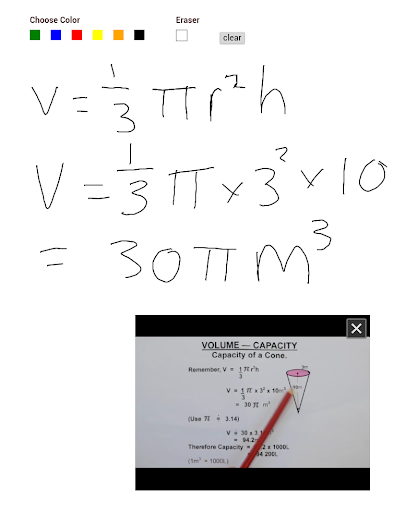 Choose Color Eraser
clear
V = 1/3 π r² h
V = 1/3 π × 3² × 10
= 30 π m³
VOLUME — CAPACITY
Capacity of a Cone.
Remember, V = 1/3 π r²h
V = 1/3 π x 3² x 10m³
= 30 π m³
(Use π ÷ 3.14)
V ÷ 30 x 3.1
= 94.2
Therefore Capacity = x 1000L
94 200L
(1m³ = 1000L)